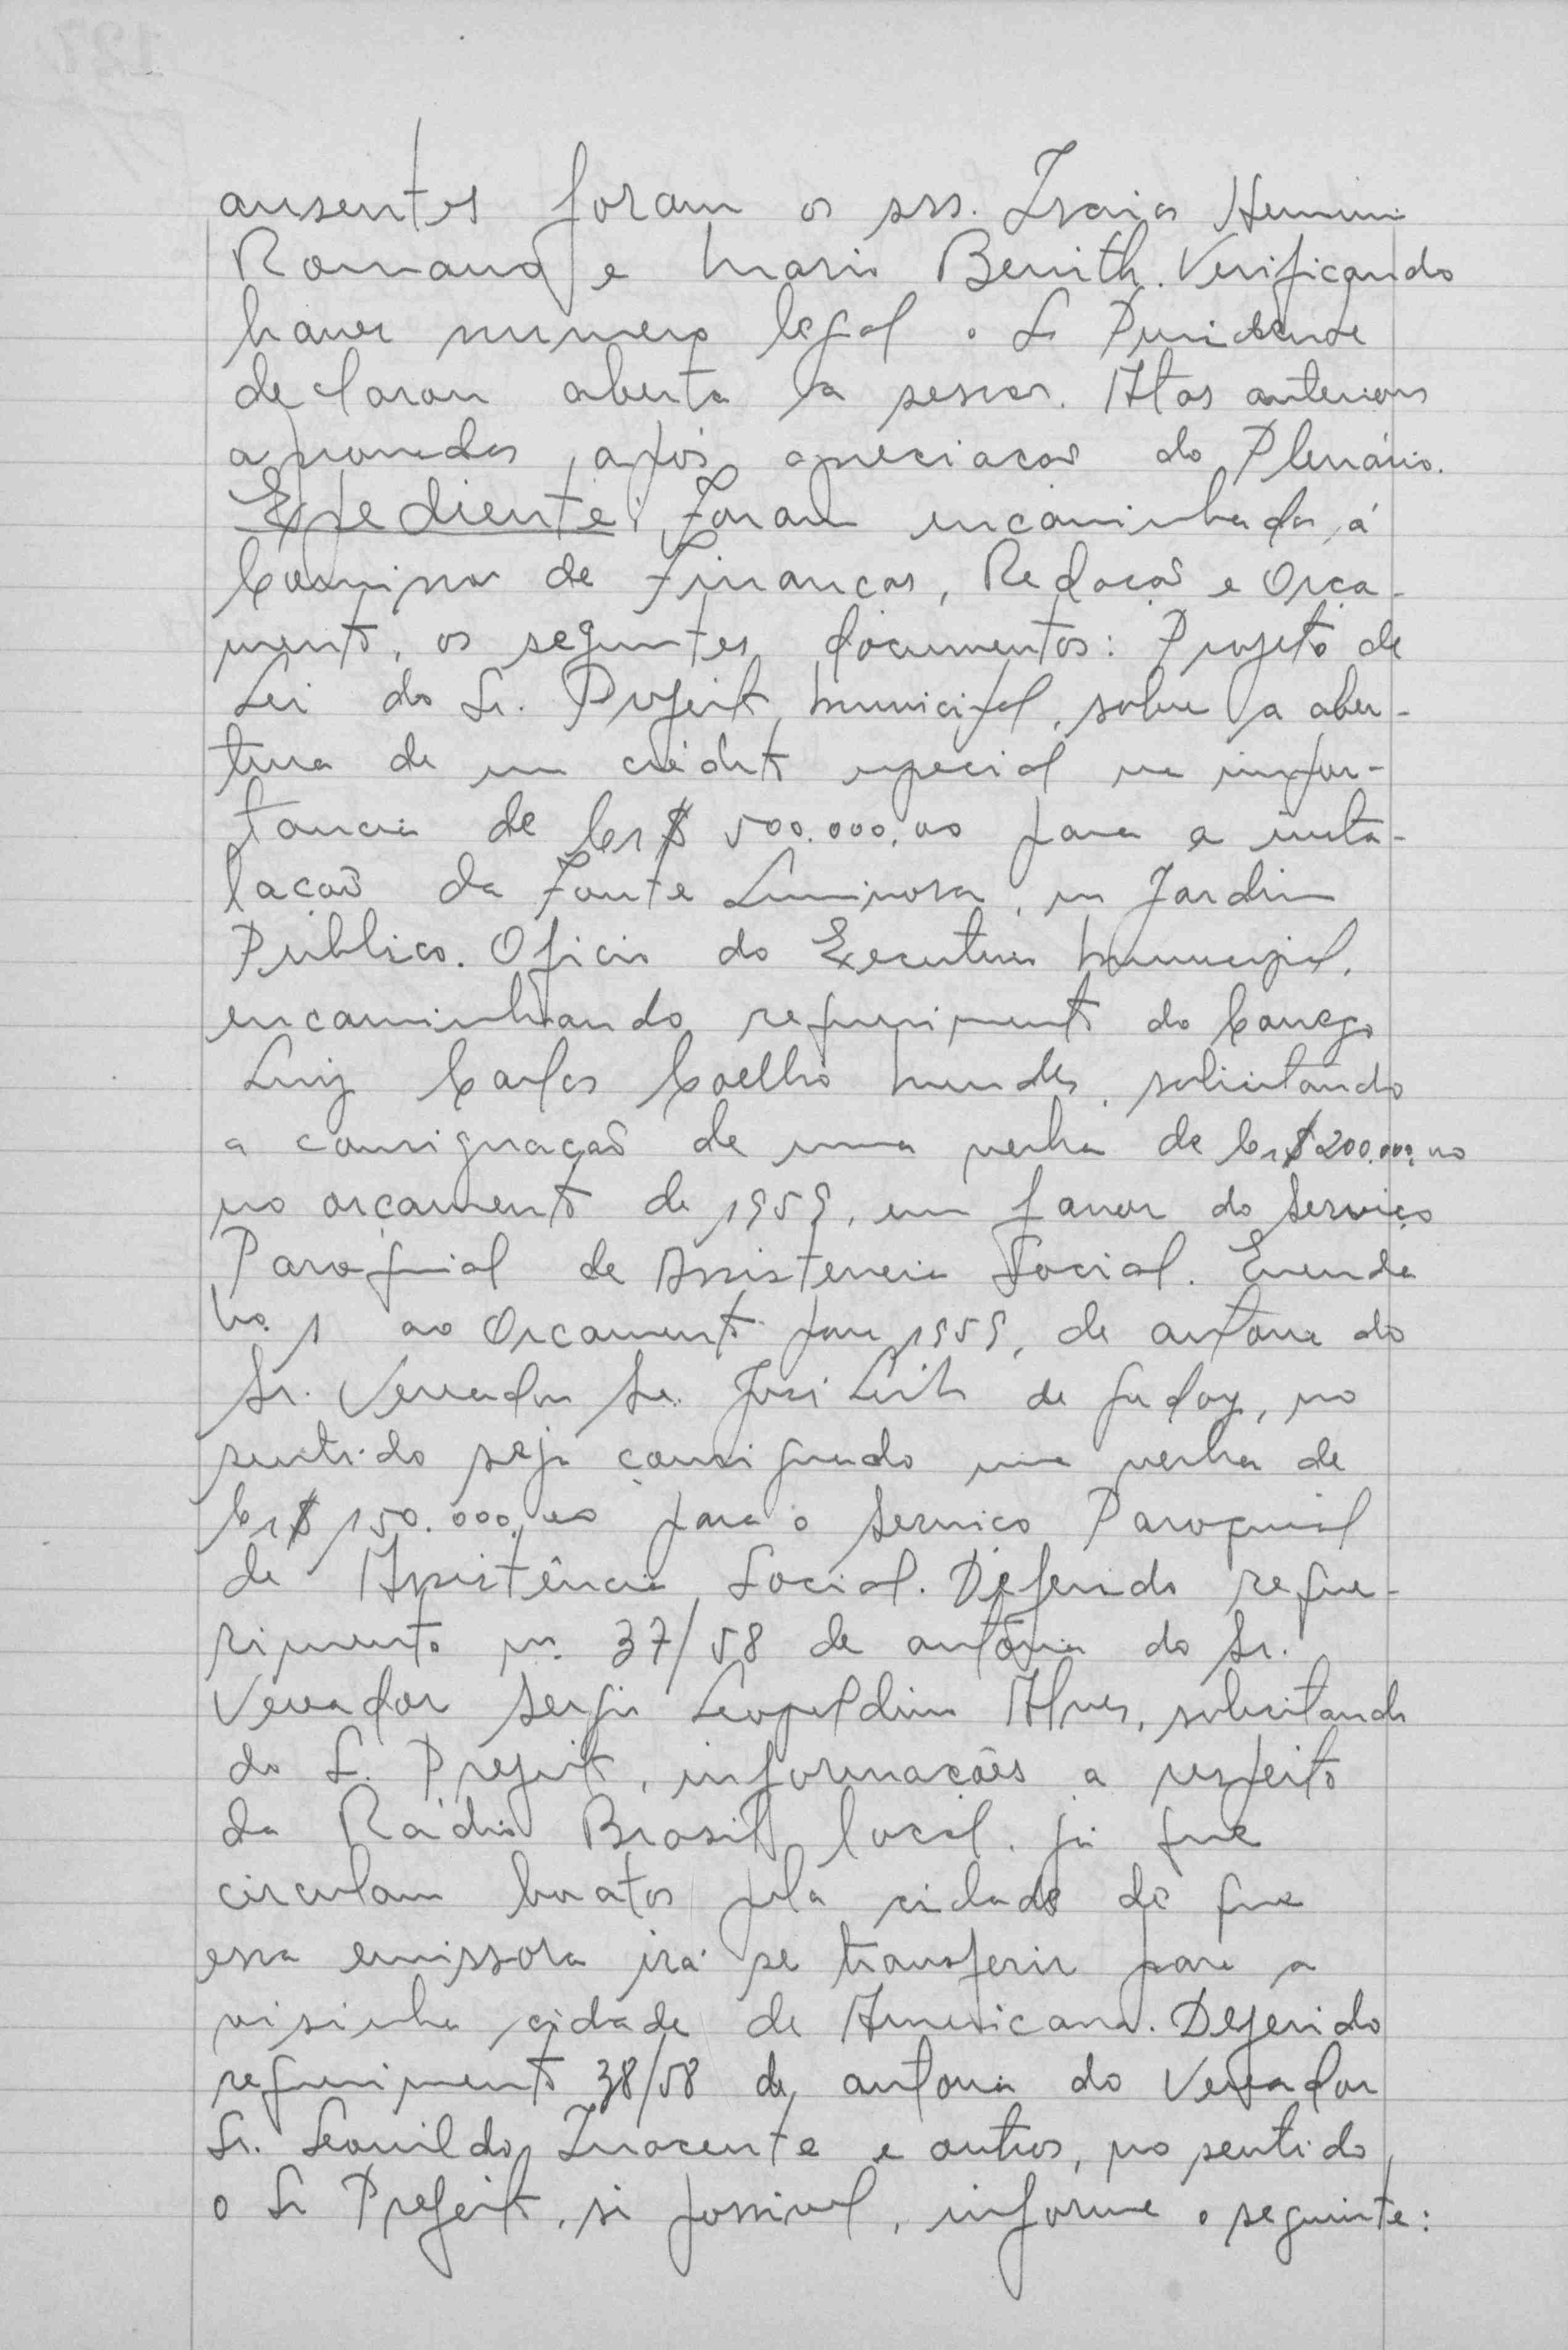 ausentes foram os srs. Isaias Hermini
Romano e Mario Benith. Verificando
haver numero legal o Sr Presidente
declarou aberta a sessão. Atas anteriores
aprovadas, após apreciacão do Plenário.
Expediente: Foram encaminhados á
Comissão de Financas, Redacão e Orça-
mento, os seguintes documentos: Projeto de
Lei do Sr. Prefeito Municipal, sobre a aber-
tura de um crédito especial na impor-
tancia de Cr$ 500.000,00 para a insta-
lacão da Fonte Luminosa, no Jardim
Público. Oficio do Executivo Municipal,
encaminhando requerimento do Conego
Luiz Carlos Coelho Mendes, solicitando
a consignação de uma verba de Cr$ 200.000,00
no orçamento de 1959, em favor do Serviço
Paroquial de Assistencia Social. Emenda
No. 1 ao Orcamento para 1959, de autoria do
Sr. Vereador Sr. José Leite de Godoy, no
sentido seja consignado uma verba de
Cr$ 150.000,00 para o Servico Paroquial
de Assistência Social. Deferido reque-
rimento no. 37/58 de autoria do Sr.
Vereador Sergio Leopoldino Alves, solicitando
do S. Prefeito, informacões a respeito
da Rádio Brasil local, já que
circulam boatos pela cidade de que
essa emissora irá se transferir para a
visinha cidade de Americana. Deferido
requerimento 38/58 de autoria do Vereador
Sr. Leonildo Inocente e outros, no sentido
o Sr Prefeito, si possivel, informe o seguinte: